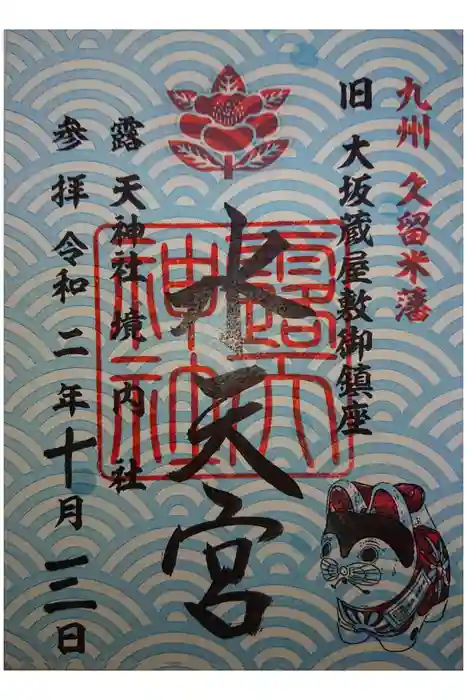 九州 久留米藩
旧 大坂蔵屋敷御鎮座
水天宮
露天
神社
露天神社境内社
参拝 令和二年十月三日